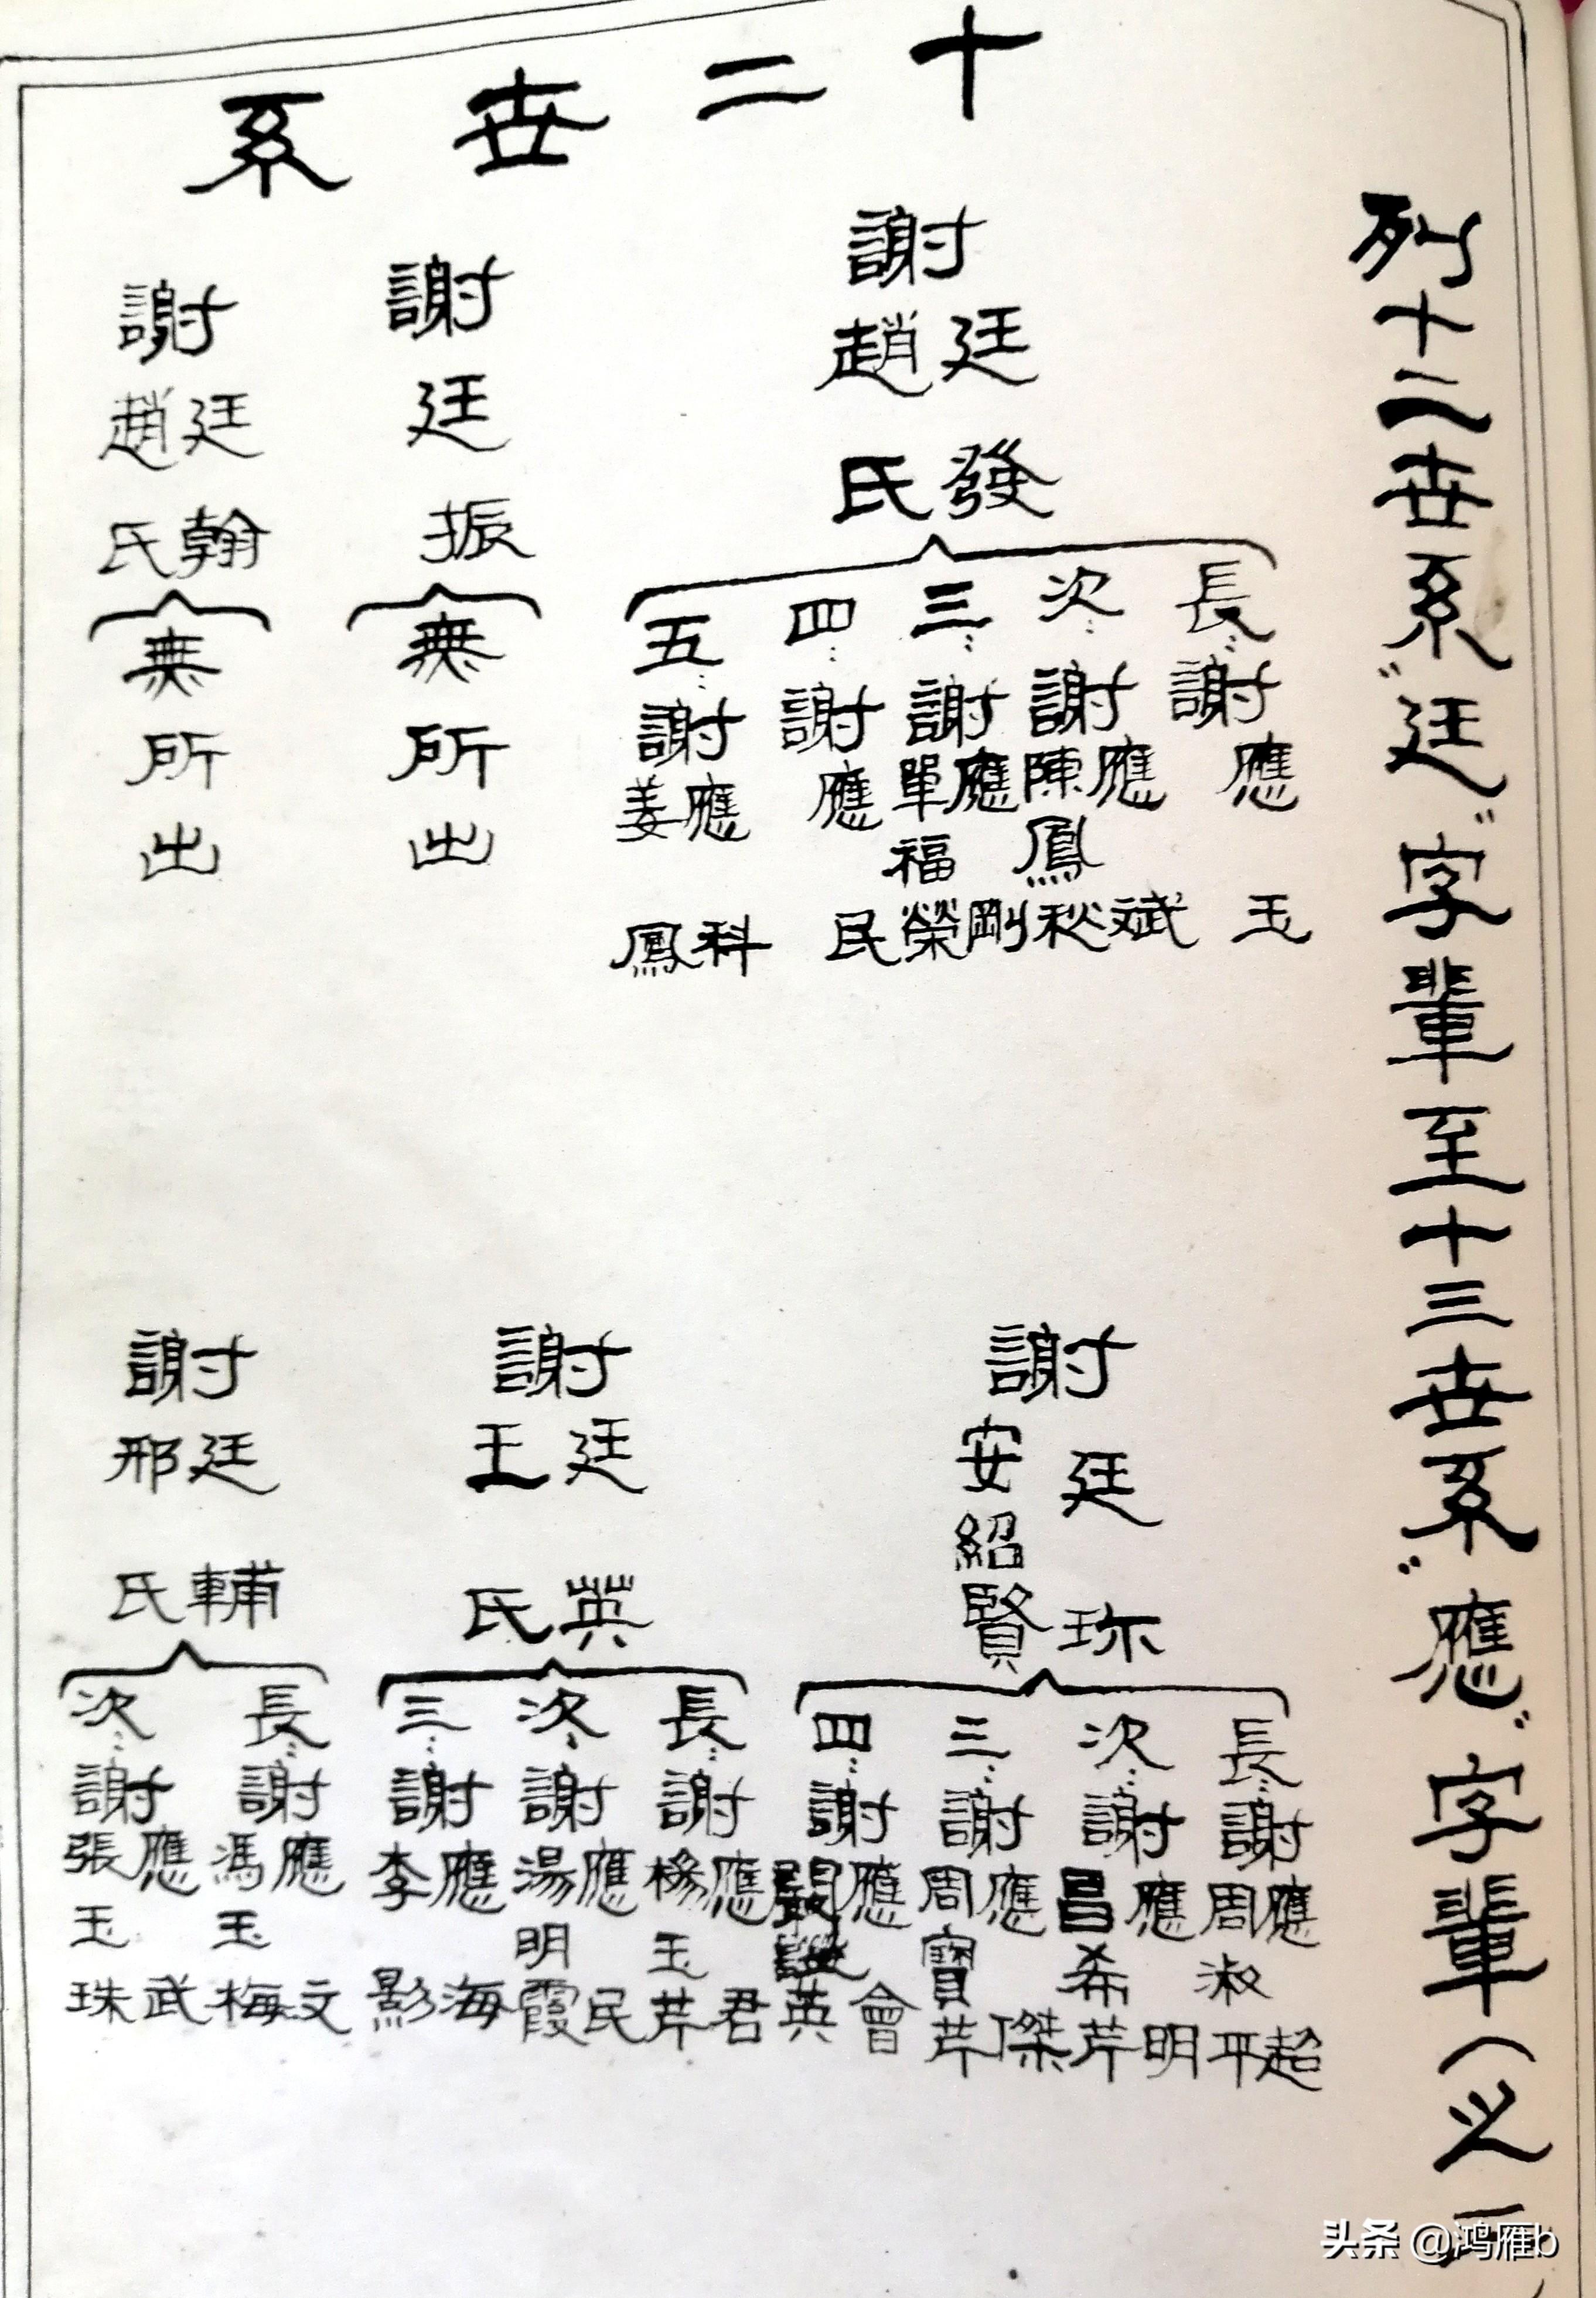 十二世系
列十二世系"廷"字輩至十三世系"應"字輩(之
謝廷發
趙氏
長:謝應玉
次:謝應斌
陳鳳秋
三:謝應剛
單福榮
四:謝應民
五:謝應科
姜鳳
謝廷振
無所出
謝廷翰
趙氏
無所出
謝廷珎
安紹賢
長:謝應超
周淑平
次:謝應明
昌希芹
三:謝應傑
周寶芹
四:謝應會
英
謝廷英
王氏
長:謝應君
楊玉芹
次:謝應民
湯明霞
三:謝應海
李影
謝廷輔
邢氏
長:謝應文
馮玉梅
次:謝應武
張玉珠
头条 @鸿雁b